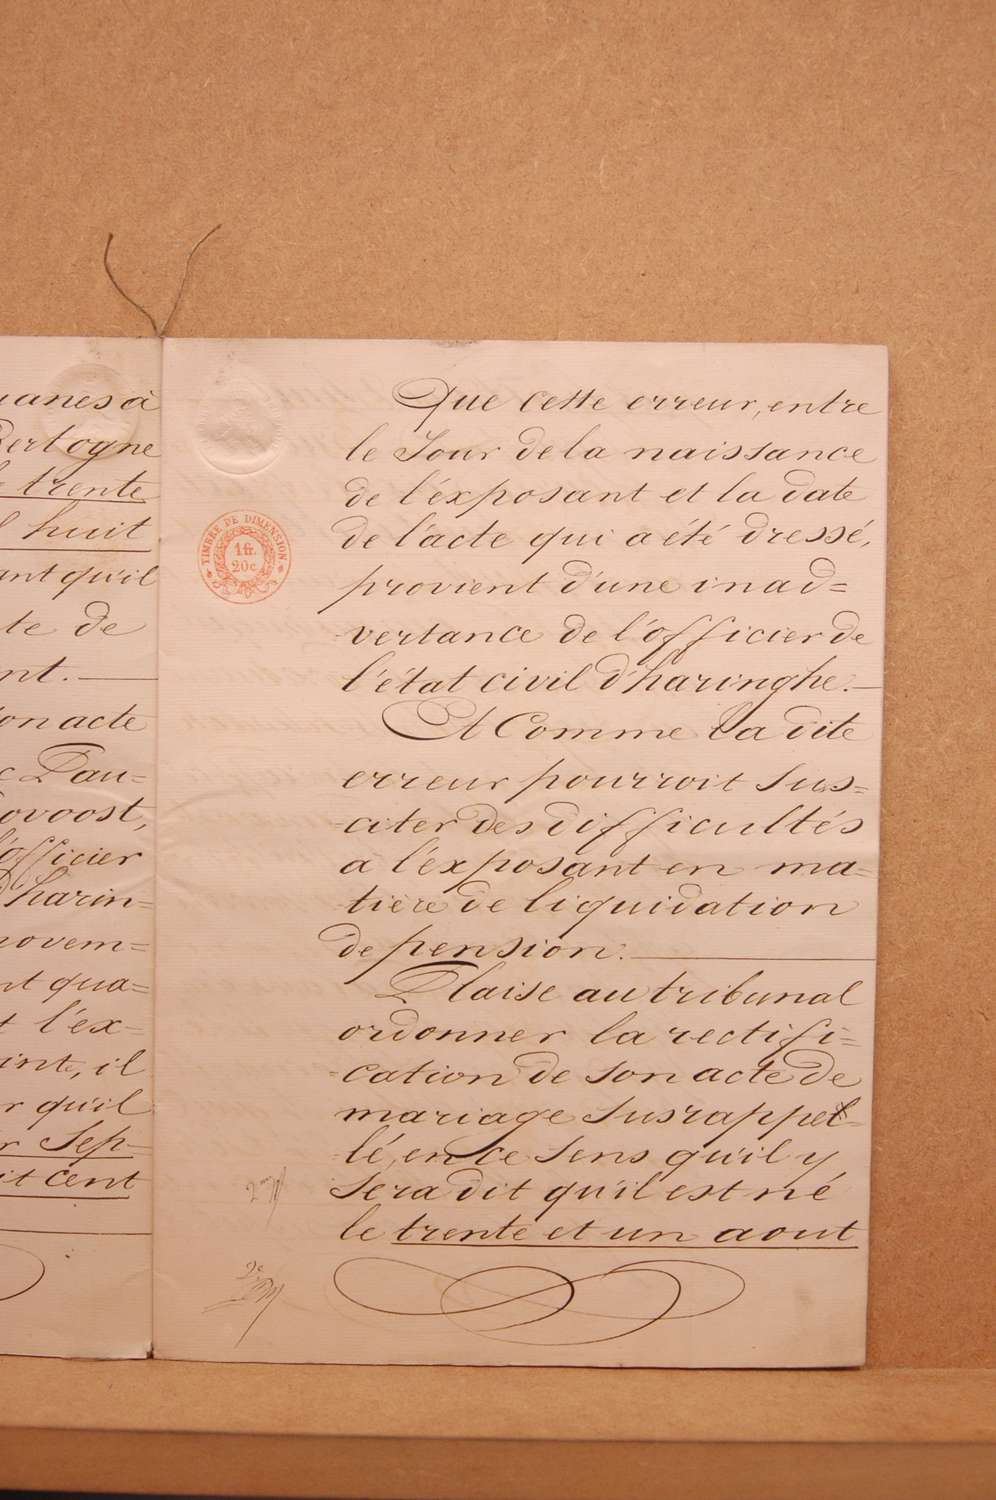 uanes à
Bertogne
le trente
l huit
ant qu'il
te de
nt.
son acte
c Pau=
ovoost,
l'officier
d'harin=
novem=
nt qua=
t l'ex-
inte, il
r qu'il
r Sep-
it cent
TIMBRE DE DIMENSION
1 fr.
20c
Que cette erreur, entre
le Jour de la naissance
de l'éxposant et la date
de l'acte qui a été dressé,
provient d'une inad=
-vertance de l'officier de
l'état civil d'haringhe.
Et Comme la dite
erreur pourroit sus=
-citer des difficultés
a l'éxposant en ma-
-tière de liquidation
de pension.
Plaise au tribunal
ordonner la rectifi=
-cation de son acte de
mariage susrappel-
-lé, en ce sens qu'il y
sera dit qu'il est né
le trente et un aout